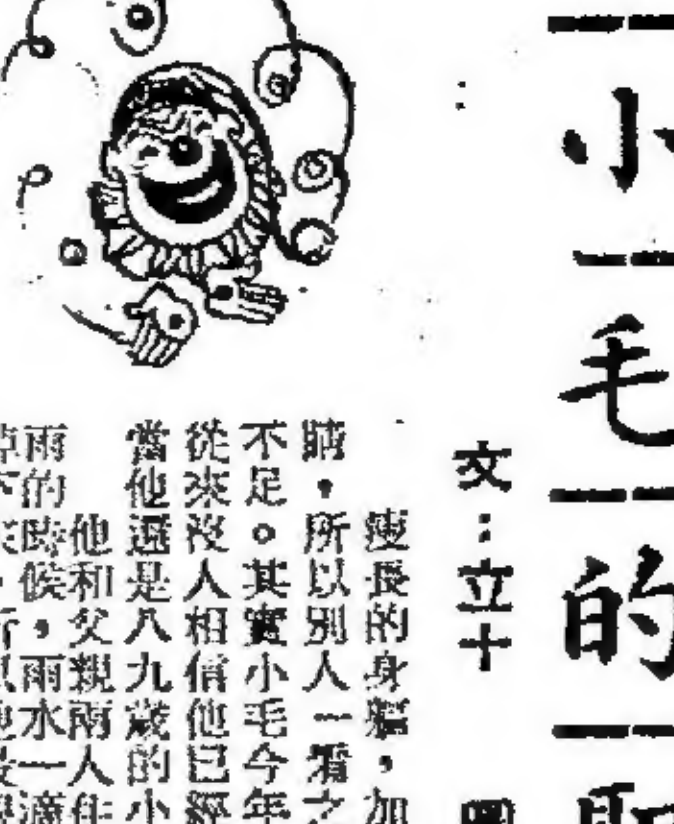 小毛的
文：立十
瘦長的身軀，加
睛，所以別人一看之
不足。其實小毛今年
從來沒人相信他已經
當他還是八九歲的小
他和父親兩人住
雨的時候，雨水一滴